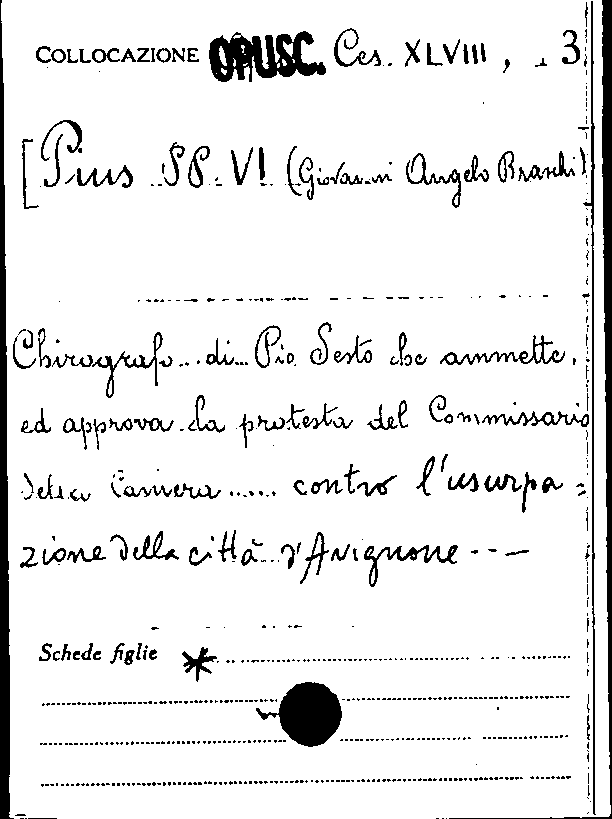 COLLOCAZIONE OPUSC. Ces. XLVIII, 3
[Pius PP. VI (Giovanni Angelo Braschi)
Chirografo... di... Pio Sesto che ammette,
ed approva la protesta del Commissario
della Camera...... contro l'usurpa=
zione della città d'Avignone ---
Schede figlie *